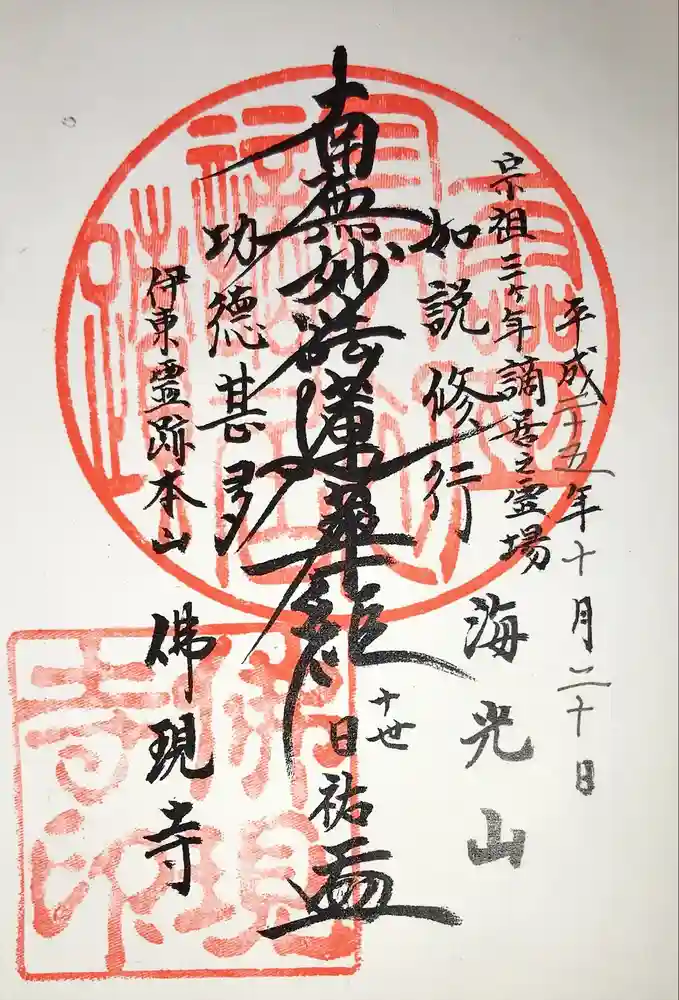 平成二十五年十月二十日
宗祖三ヶ年謫居之霊場
海光山
如説修行
南無妙法蓮華経
十世
日祐
功徳甚多
伊東霊跡本山
佛現寺
佛現寺印